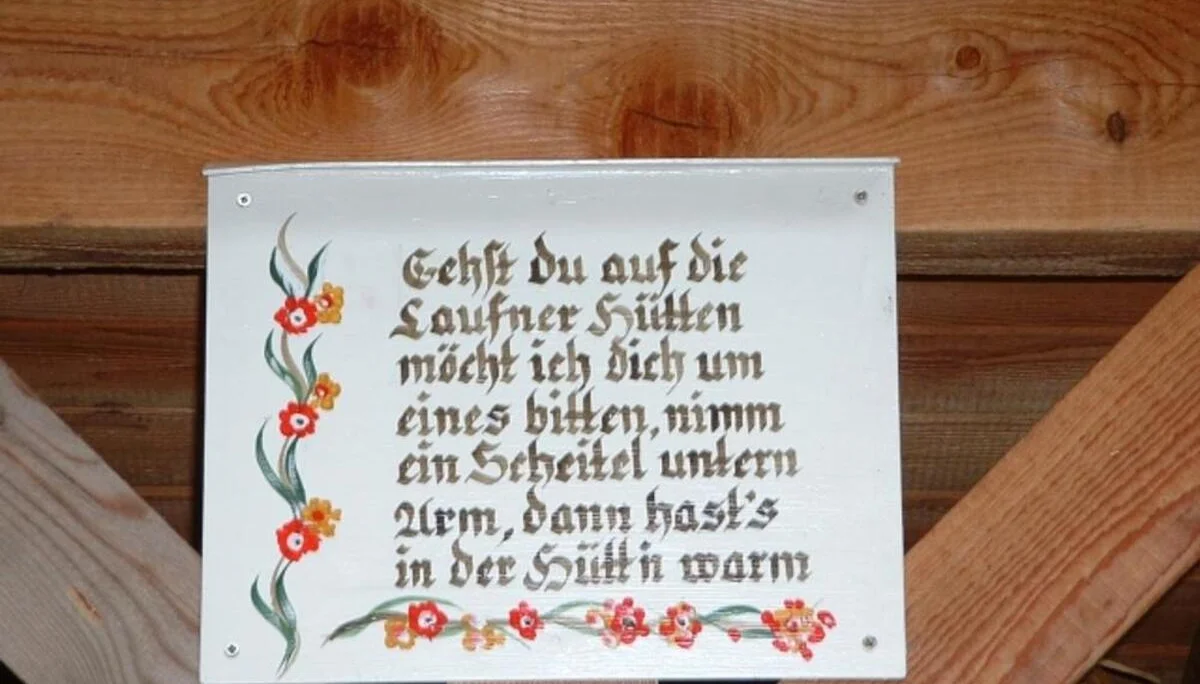 Gehst du auf die
Laufner Hütten
möcht ich dich um
eines bitten, nimm
ein Scheitel untern
Arm, dann hast's
in der Hütt'n warm